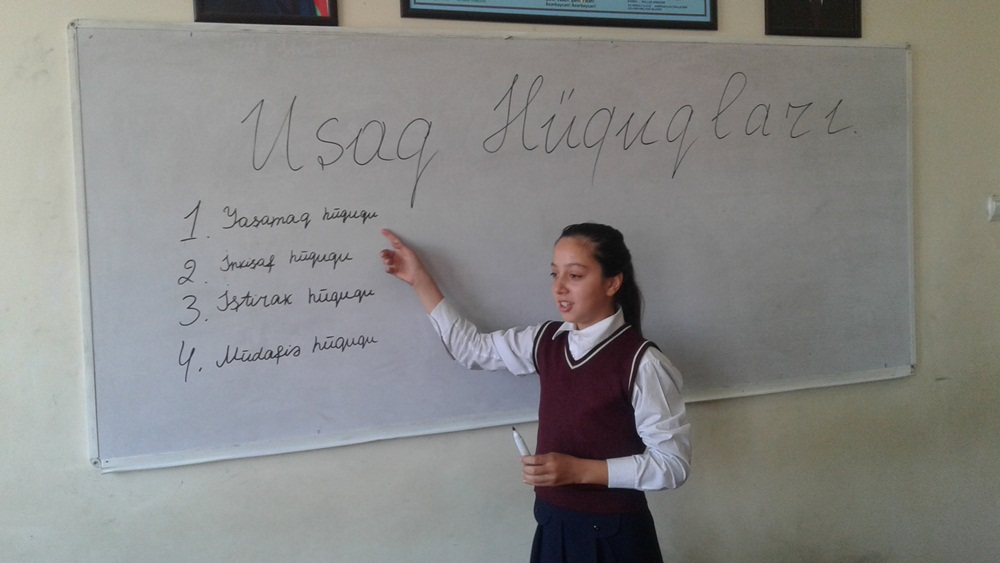 Uşaq Hüquqları.
1. Yaşamaq hüququ
2. İnkişaf hüququ
3. İştirak hüququ
4. Müdafiə hüququ